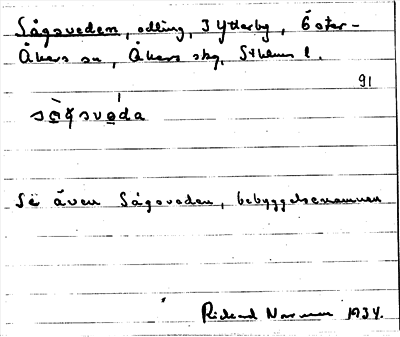 Sågsveden, odling, 3 Ytterby, Öster-
Åkers sn, Åkers skg, Sthlms l.
91
sågsveda
Se även Sågsveden, bebyggelsenamnen
Rickard Norman 1934.